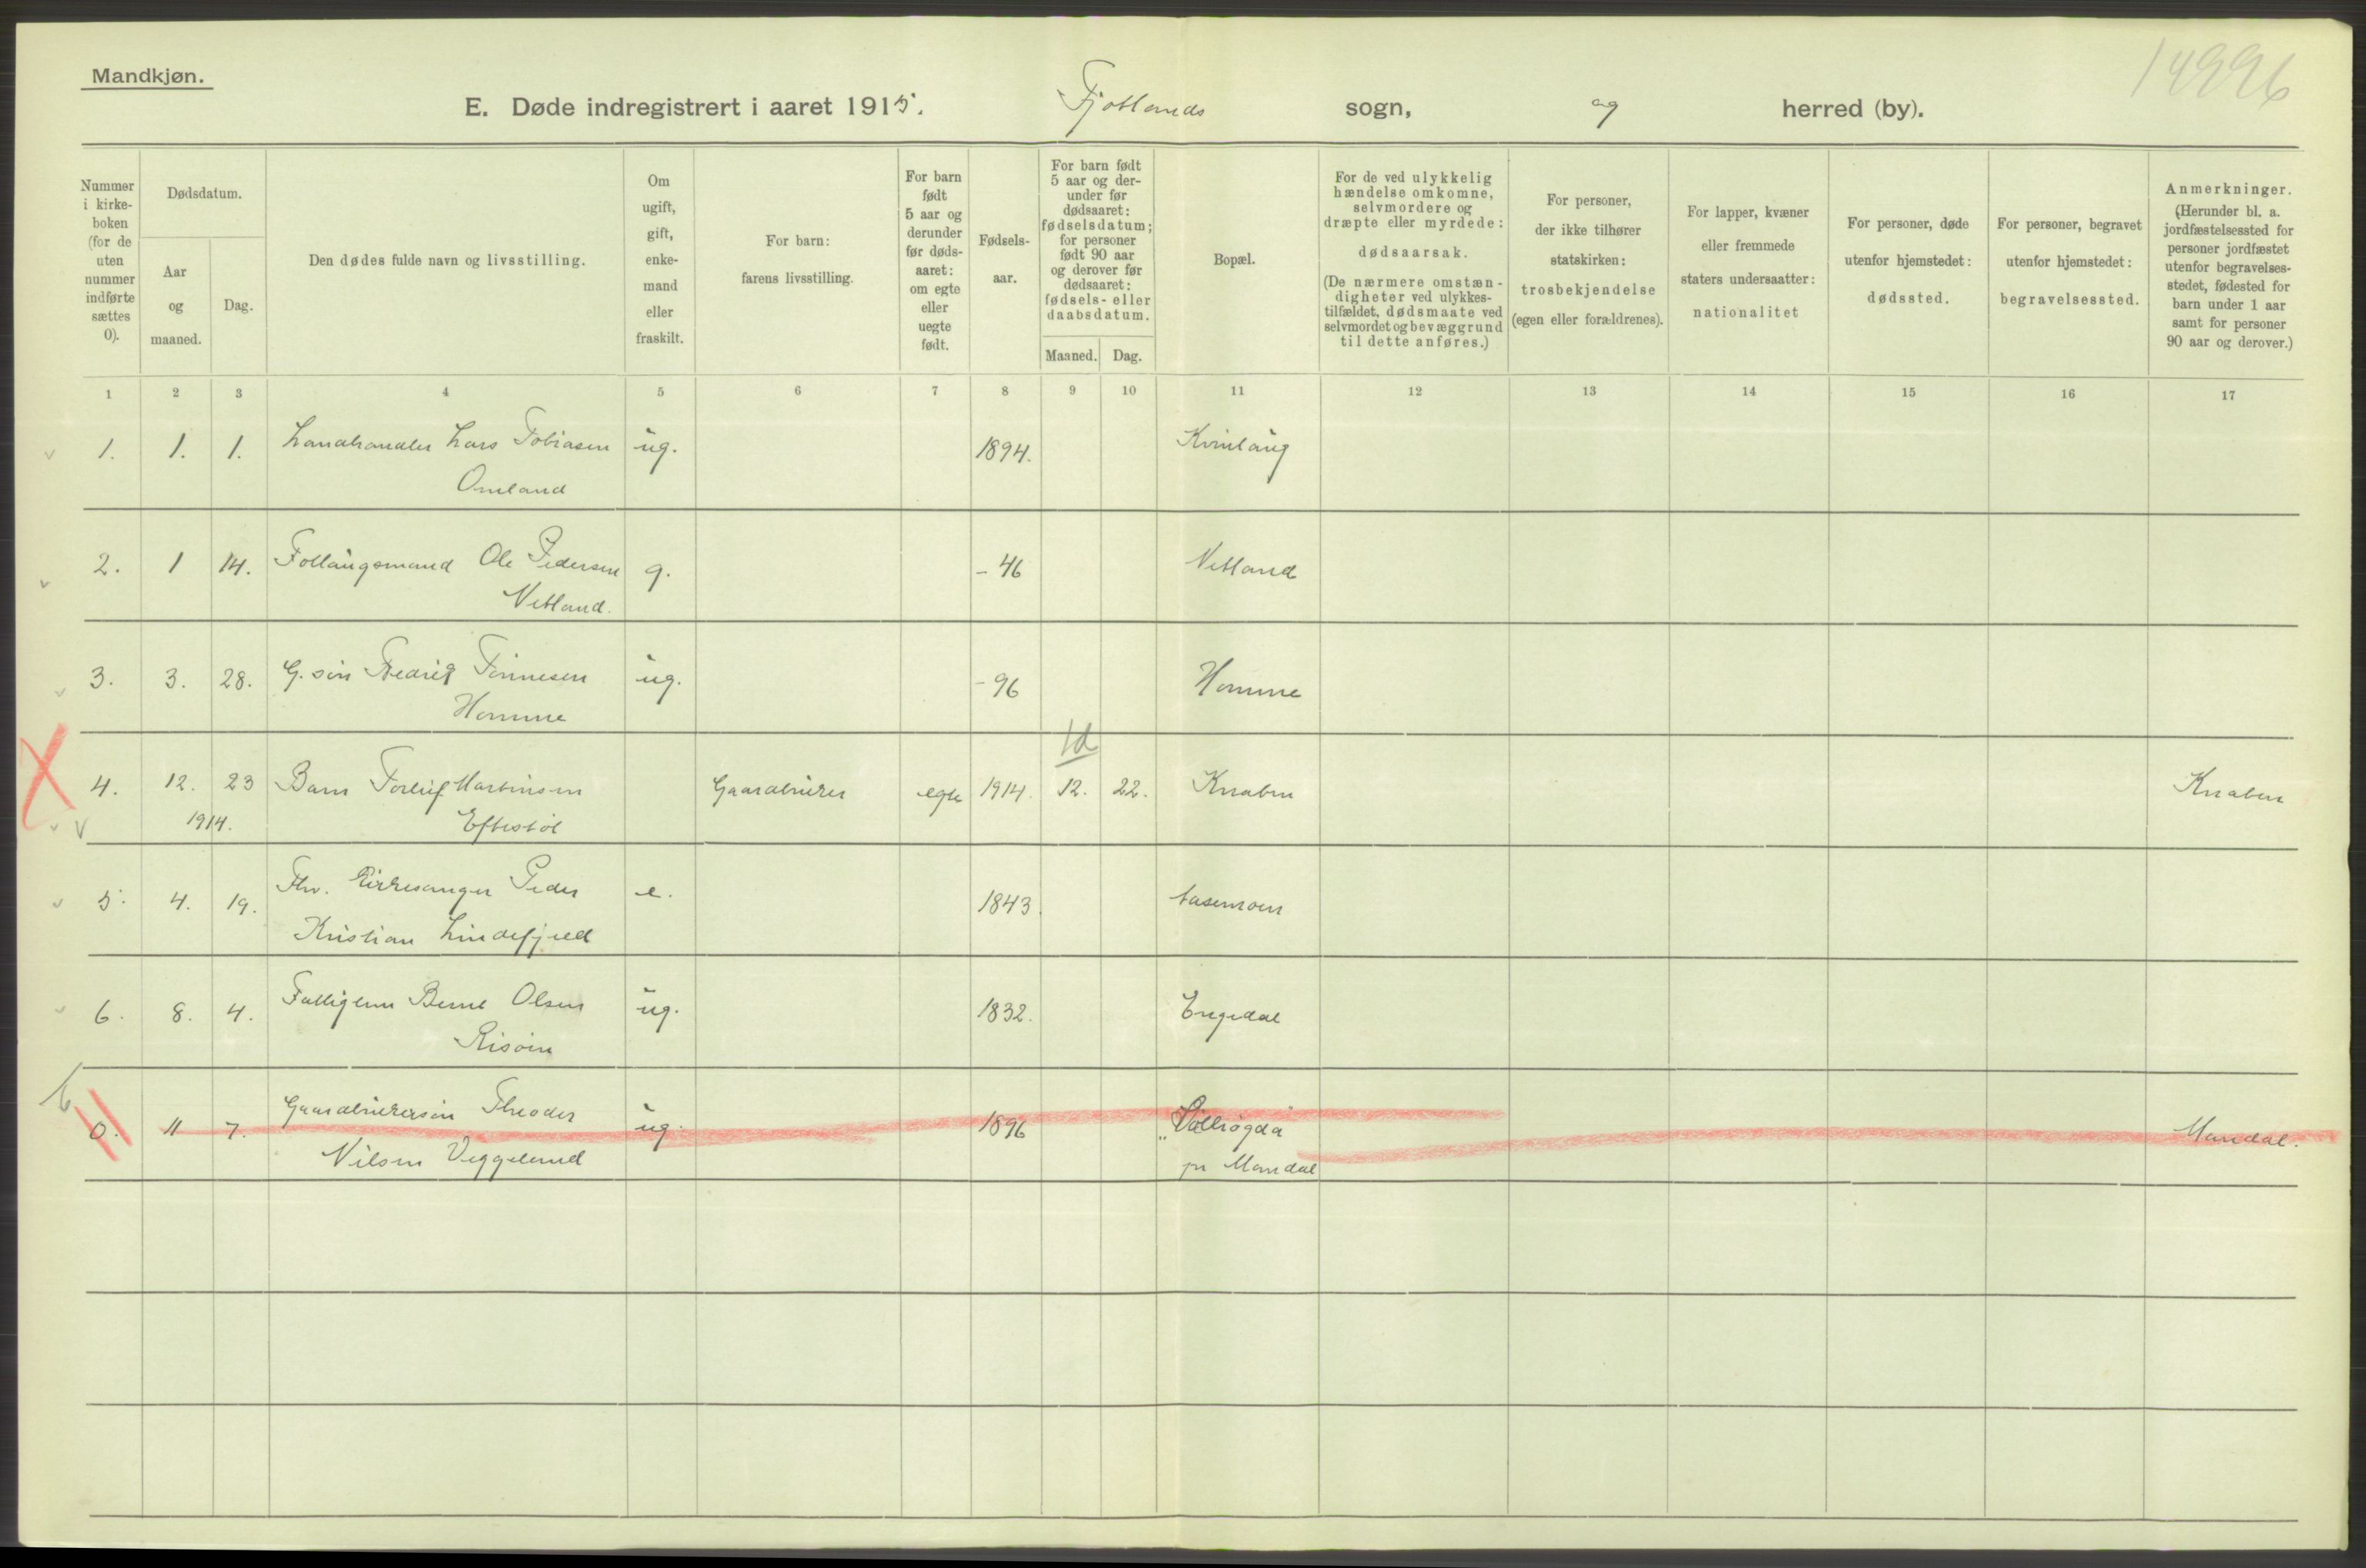 Mandkjøn.
14996
E. Døde indregistrert i aaret 1915. Fjotlands sogn, og herred (by).
Nummer i kirke- boken (for de uten nummer indførte sættes 0).
Dødsdatum.
Aar og maaned.
Dag.
Den dødes fulde navn og livsstilling.
Om ugift, gift, enke- mand eller fraskilt.
For barn: farens livsstilling.
For barn født 5 aar og derunder før døds- aaret: om egte eller uegte født.
Fødsels- aar.
For barn født 5 aar og der- under før dødsaaret: fødselsdatum; for personer født 90 aar og derover før dødsaaret: fødsels- eller daabsdatum.
Maaned. Dag.
Bopæl.
For de ved ulykkelig hændelse omkomne, selvmordere og dræpte eller myrdede: dødsaarsak. (De nærmere omstæn- digheter ved ulykkes- tilfældet, dødsmaate ved selvmordet og bevæggrund til dette anføres.)
For personer, der ikke tilhører statskirken: trosbekjendelse (egen eller forældrenes).
For lapper, kvæner eller fremmede staters undersaatter: nationalitet
For personer, døde utenfor hjemstedet: dødssted.
For personer, begravet utenfor hjemstedet: begravelsessted.
Anmerkninger. (Herunder bl. a. jordfæstelsessted for personer jordfæstet utenfor begravelses- stedet, fødested for barn under 1 aar samt for personer 90 aar og derover.)
1 2 3 4 5 6 7 8 9 10 11 12 13 14 15 16 17
1. 1. 1. Landhandler Lars Tobiasen ug. 1894. Kvinlaug
Omland
2. 1 14. Follaugsmand Ole Pedersen g. - 46 Netland
Netland.
3. 3. 28. G. søn Fredrik Tønnesen ug. - 96 Homme
Homme
1d
4. 12. 23 Barn Torleif Martinsen Gaardbruker egte 1914. 12. 22. Knaben Knaben
1914. Eftestøl
5. 4. 19. Fhv. Kirkesanger Peder e. 1843.
Kristian Lindefjeld
6. 8. 4. Fattiglem Bernt Olsen ug. 1832. Engedal
Risøin
6
0. 11 7. Gaardbrukersøn Theodor ug. 1896 Mandal.
Nilsen Veggeland pr Mandal